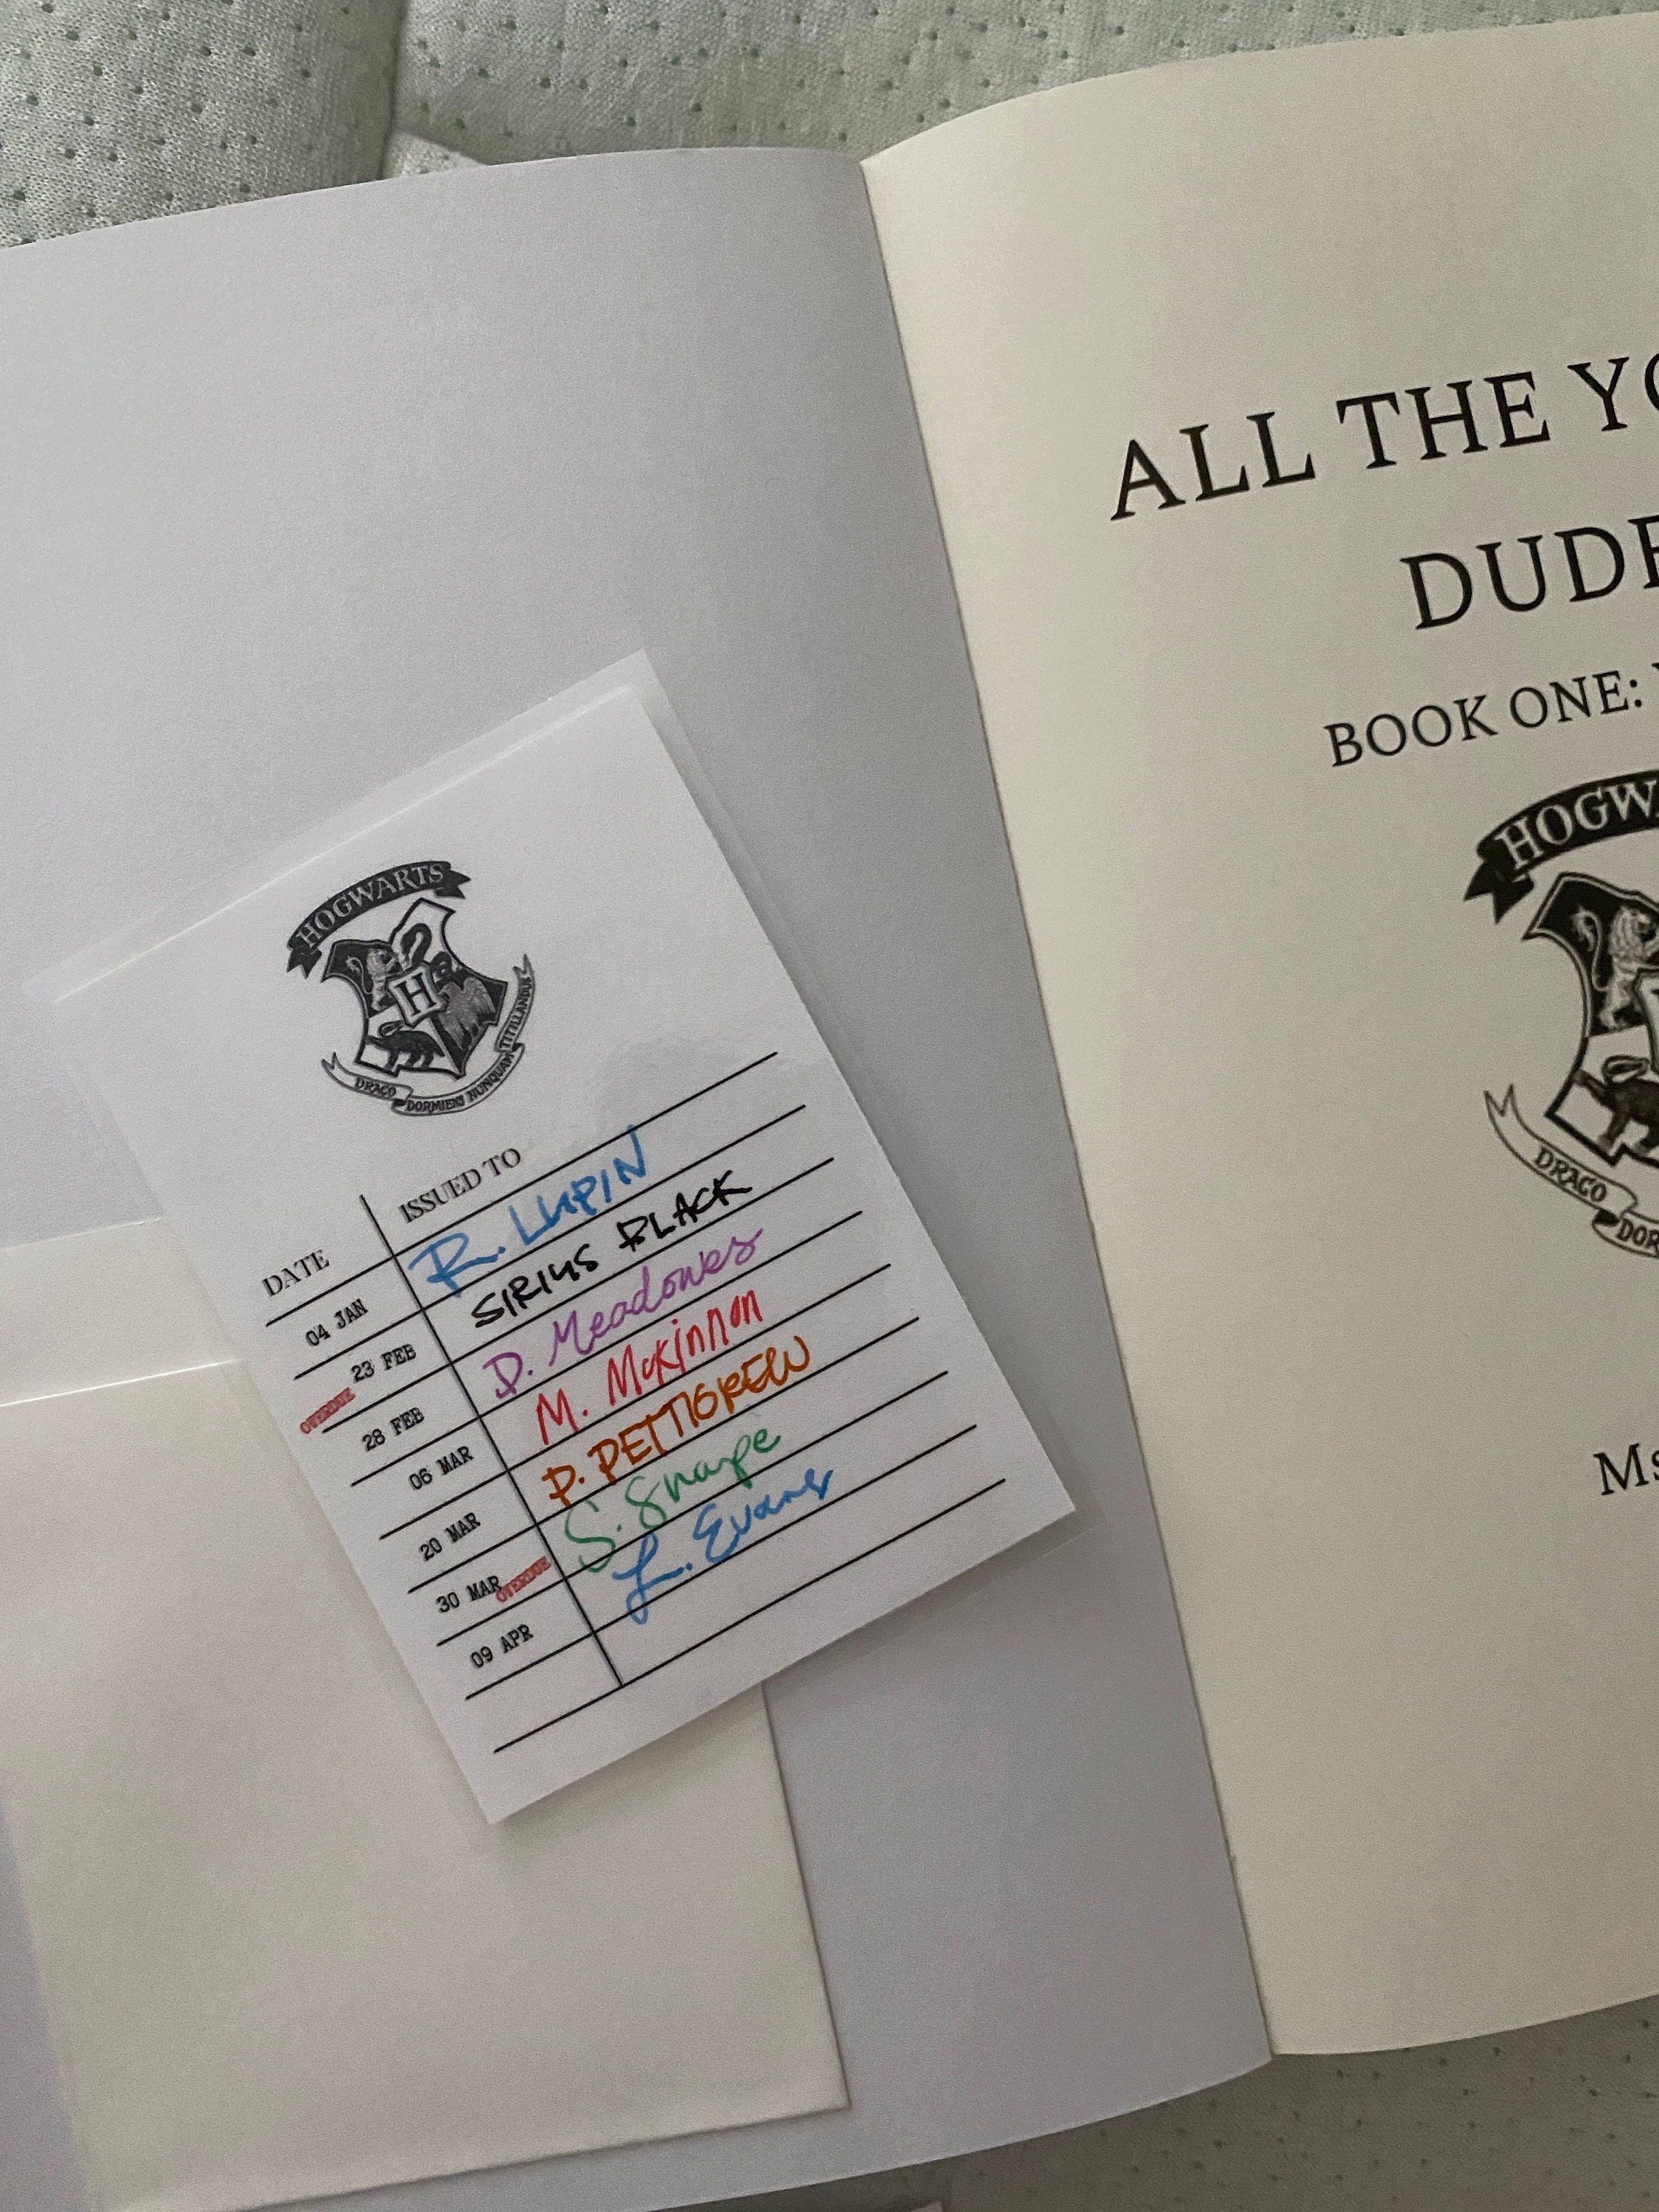 HOGWARTS
H
DRACO DORMIENS NUNQUAM TITILLANDUS
DATE ISSUED TO
04 JAN R. LUPIN
23 FEB SIRIUS BLACK
OVERDUE
28 FEB D. Meadowes
06 MAR M. McKinnon
20 MAR P. PETTIGREW
30 MAR OVERDUE S. Snape
09 APR L. Evans
ALL THE
DUDE
BOOK ONE:
HOGW
DRACO
DOR
Ms